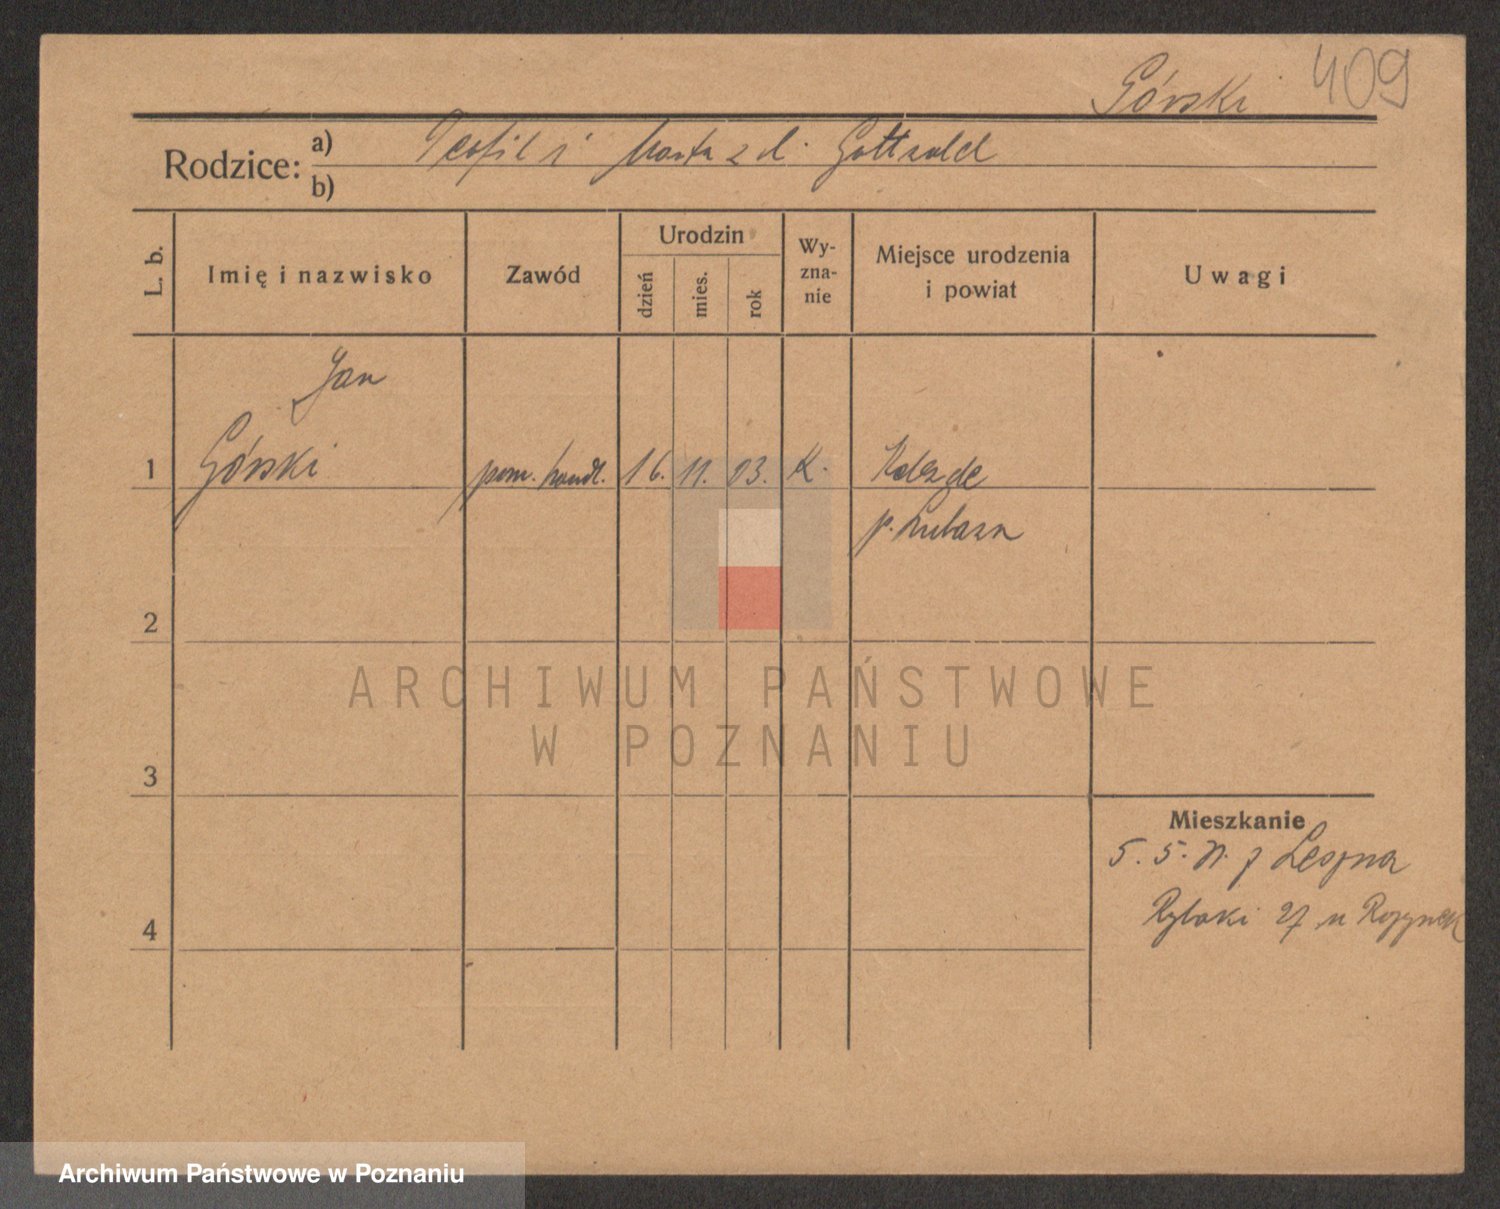 Górski 409
Rodzice: a) Teofil i Marta z d. Gottwald
b)
L. b.
Imię i nazwisko
Zawód
Urodzin
dzień
mies.
rok
Wy-
zna-
nie
Miejsce urodzenia
i powiat
Uwagi
Jan
1 Górski pom. handl. 16. 11. 03. K.
p. Lubasz
2
ARCHIWUM PAŃSTWOWE
W POZNANIU
3
Mieszkanie
5. 5. z Leszna
4 Rybaki 27 u
Archiwum Państwowe w Poznaniu